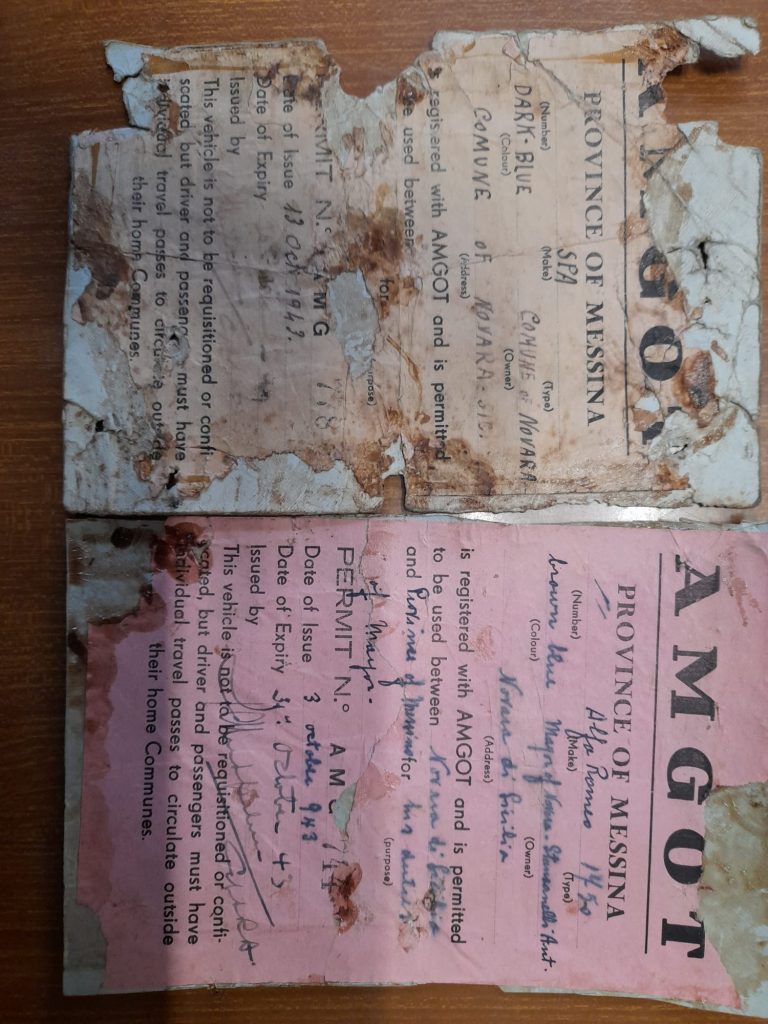 AMGOT
PROVINCE OF MESSINA
SPA
(Number) (Make) (Type)
DARK-BLUE COMUNE of NOVARA
(Colour) (Owner)
COMUNE OF NOVARA. SIC.
(Address)
is registered with AMGOT and is permitted
be used between
for
(purpose)
PERMIT N.° AMG 778
Date of Issue 13 Oct 1943.
Date of Expiry
Issued by
This vehicle is not to be requisitioned or confi-
scated, but driver and passengers must have
individual travel passes to circulate outside
their home Communes.
AMGOT
PROVINCE OF MESSINA
Alfa Romeo 1450
(Number) (Make) (Type)
brown blue Mayor of Novara Stancanelli Ant.
(Colour) (Owner)
Novara di Sicilia
(Address)
is registered with AMGOT and is permitted
to be used between Novara di Sicilia
and Province of Messina for his duties
(purpose)
of Mayor.
PERMIT N.° AMG
Date of Issue 3 octobre 943
Date of Expiry 31 October 43
Issued by
This vehicle is not to be requisitioned or confi-
scated, but driver and passengers must have
individual travel passes to circulate outside
their home Communes.